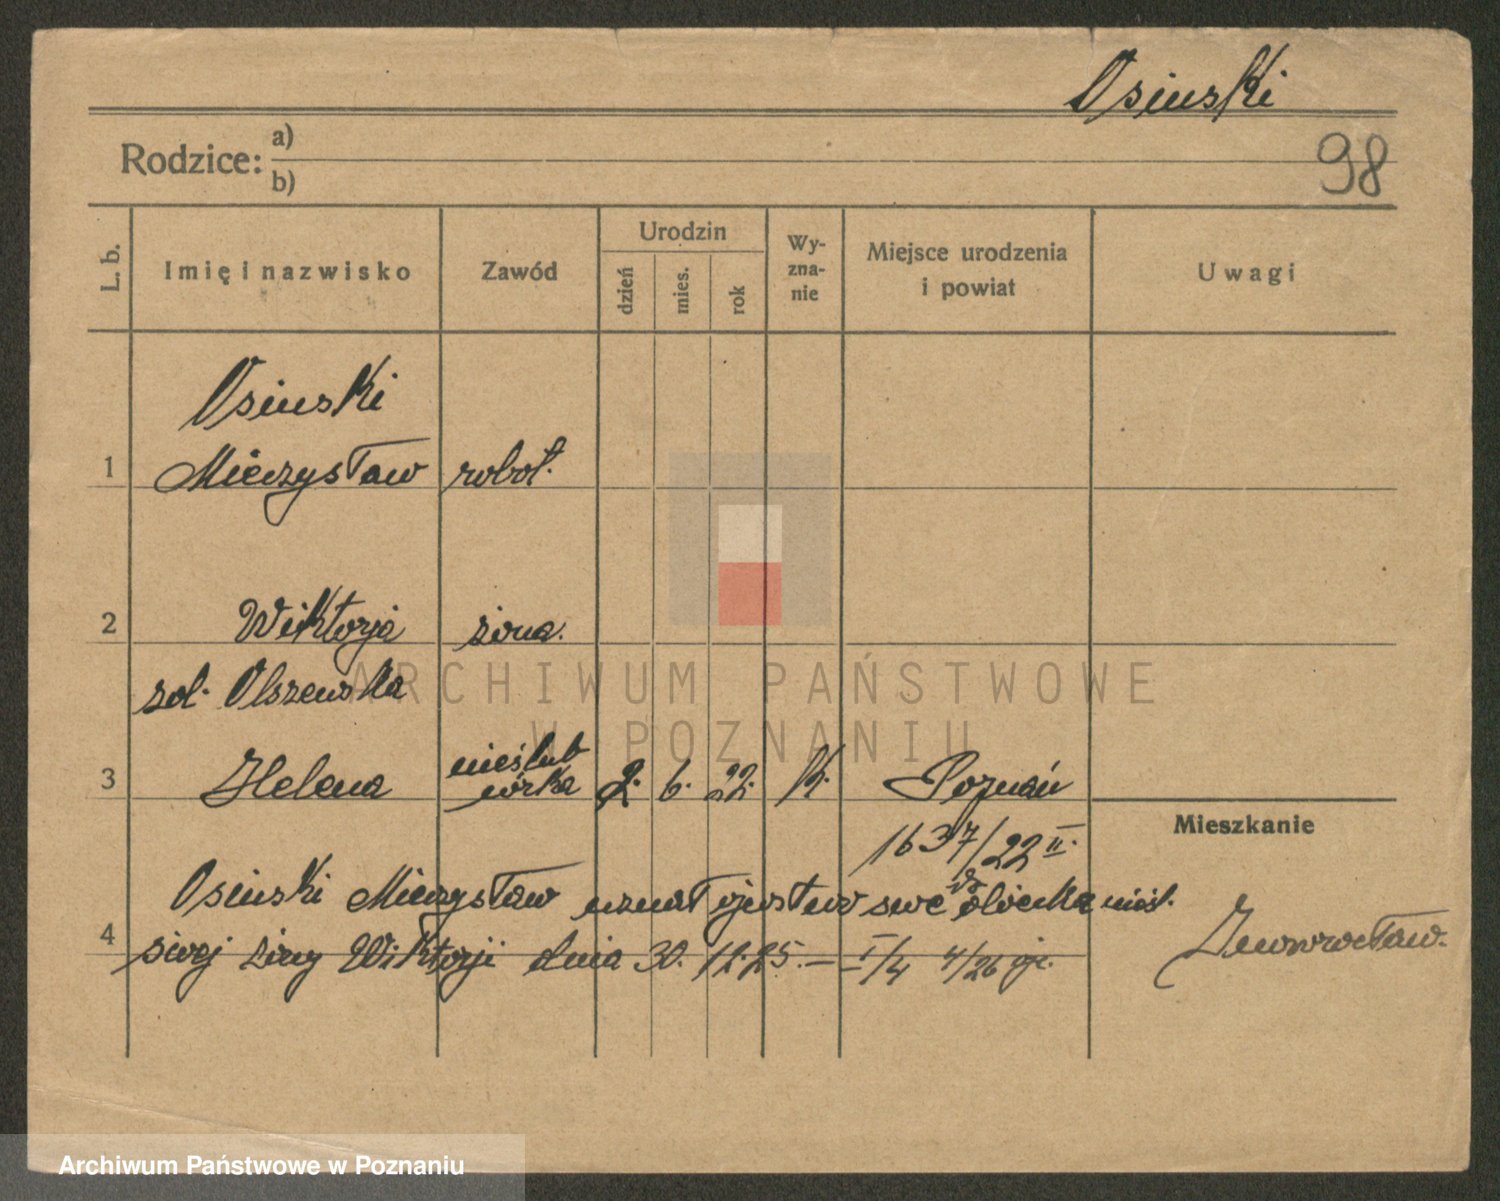 Osiński
98
Rodzice: a)
b)
L. b. Imię i nazwisko Zawód Urodzin dzień mies. rok Wy-zna-nie Miejsce urodzenia i powiat Uwagi
Osiński
1 Mieczysław robot.
2 Wiktorja żona.
zd. Olszewska
3 Helena nieślub córka 2. 6. 22. K. Poznań
1637/22 II.
Mieszkanie
Osiński Mieczysław uznał ojcostwo swe do dziecka nieśl.
4 swej żony Wiktorji dnia 30. 12. 25. — I/4 4/26
Inowrocław.
ARCHIWUM PAŃSTWOWE
W POZNANIU
Archiwum Państwowe w Poznaniu